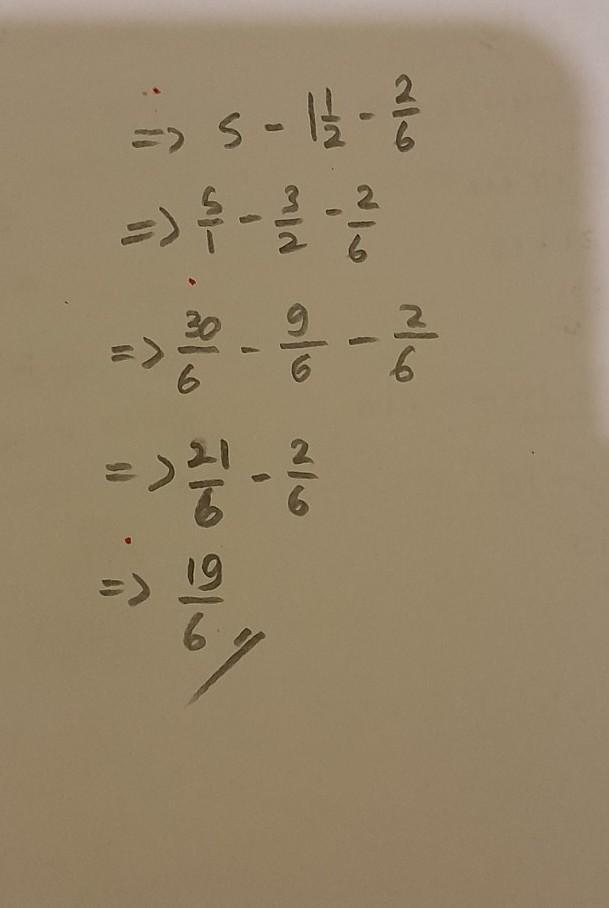 => 5 - 1 1/2 - 2/6
=> 5/1 - 3/2 - 2/6
=> 30/6 - 9/6 - 2/6
=> 21/6 - 2/6
=> 19/6 //